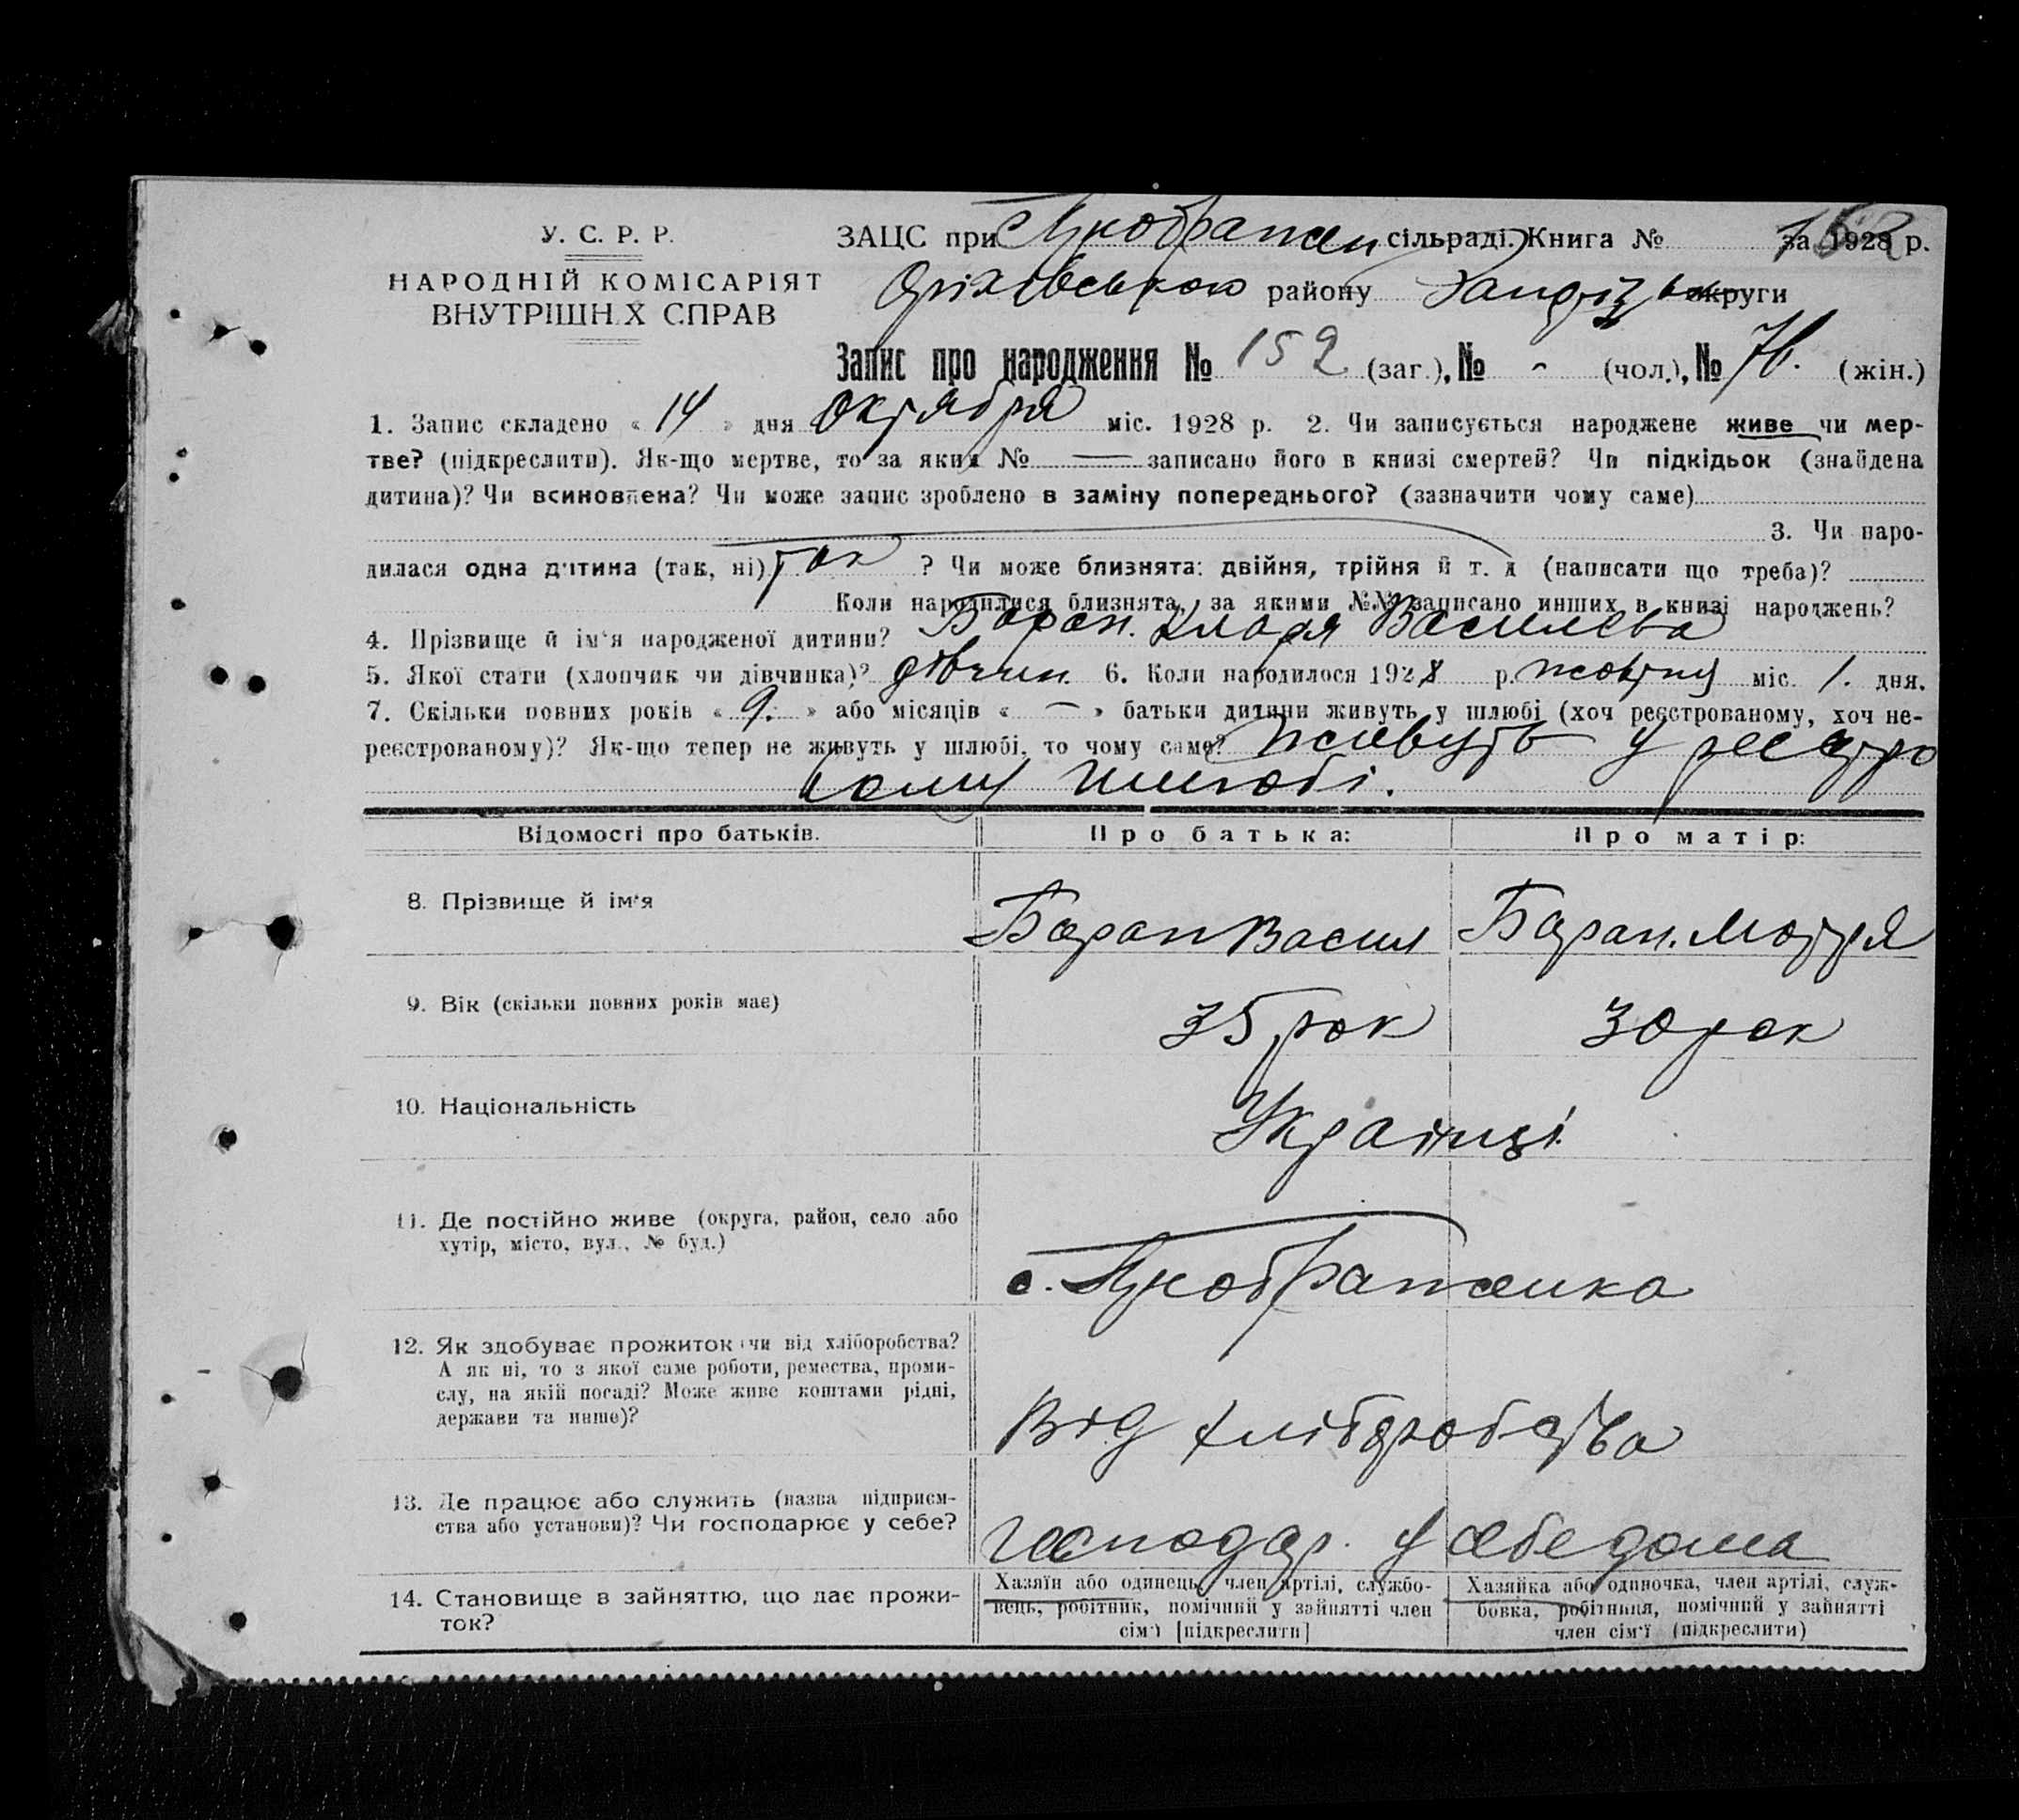 У. С. Р. Р.
НАРОДНІЙ КОМІСАРІЯТ
ВНУТРІШН Х СПРАВ
ЗАЦС при сільраді. Книга № 152 за 1928 р.
Оріхівською району Запоріз округи
Запис про народження № 152 (заг.), № - (чол.), № 76. (жін.)
1. Запис складено « 14 » дня октября міс. 1928 р. 2. Чи записується народжене живе чи мер-
тве? (підкреслити). Як-що мертве, то за яким № — записано його в книзі смертей? Чи підкідьок (знайдена
дитина)? Чи всиновлена? Чи може запис зроблено в заміну попереднього? (зазначити чому саме)
3. Чи наро-
дилася одна дитина (так, ні) так ? Чи може близнята: двійня, трійня й т. д (написати що треба)?
Коли народилися близнята, за якими №№ записано инших в книзі народжень?
4. Прізвище й ім'я народженої дитини? Баран. Василева
5. Якої стати (хлопчик чи дівчинка)? дівчин. 6. Коли народилося 1928 р. жовтня міс. 1. дня.
7. Скільки повних років « 9. » або місяців « — » батьки дитини живуть у шлюбі (хоч реєстрованому, хоч не-
реєстрованому)? Як-що тепер не живуть у шлюбі, то чому саме? живуть у реєстро
ваому шлюбі.
Відомості про батьків. Про батька: Про матір:
8. Прізвище й ім'я Баран Васил Баран. Мотря
9. Вік (скільки повних років має) 35 рок 30 рок
10. Національність Українці
11. Де постійно живе (округа, район, село або
хутір, місто, вул., № буд.)
с. Преображенка
12. Як здобуває прожиток чи від хліборобства?
А як ні, то з якої саме роботи, ремества, проми-
слу, на якій посаді? Може живе коштами рідні,
держави та инше)?
Від хліборобства
13. Де працює або служить (назва підприєм-
ства або установи)? Чи господарює у себе?
господар. у себе дома
14. Становище в зайняттю, що дає прожи-
ток?
Хазяїн або одинець, член артілі, службо-
вець, робітник, помічний у зайнятті член
сім'ї [підкреслити]
Хазяйка або одиночка, член артілі, служ-
бовка, робітниця, помічний у зайнятті
член сім'ї (підкреслити)